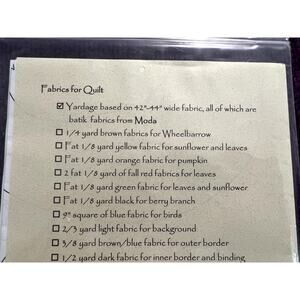 Fabrics for Quilt
☑ Yardage based on 42"-44" wide fabric, all of which are
batik fabrics from Moda
☐ 1/4 yard brown fabrics for Wheelbarrow
☐ Fat 1/8 yard yellow fabric for sunflower and leaves
☐ Fat 1/8 yard orange fabric for pumpkin
☐ 2 fat 1/8 yard of fall red fabrics for leaves
☐ Fat 1/8 yard green fabric for leaves and sunflower
☐ Fat 1/8 yard black for berry branch
☐ 9" square of blue fabric for birds
☐ 2/3 yard light fabric for background
☐ 3/8 yard brown/blue fabric for outer border
☐ 1/2 yard dark fabric for inner border and binding